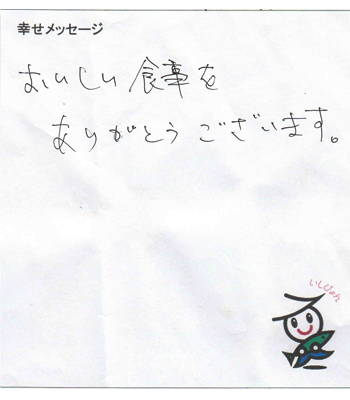 幸せメッセージ
おいしい食事を
ありがとうございます。
いしぴょん